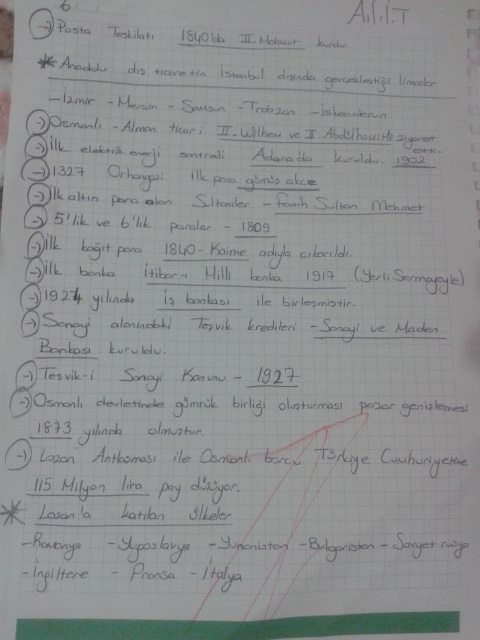 6
A.İ.İ.T
→ Posta Teşkilatı 1840'da II. Mahmut kurdu
* Anadolu dış ticaretin İstanbul dışında gerçekleştiği limanlar
- İzmir - Mersin - Samsun - Trabzon - İskenderun
→ Osmanlı - Alman ticari II. Wilhem ve II. Abdülhamit'i ziyaret etti.
→ İlk elektrik enerji santrali Adana'da kuruldu. 1902
→ 1327 Orhangazi ilk para gümüş akçe
→ İlk altın para olan Sultaniler - Fatih Sultan Mehmet
→ 5'lik ve 6'lık paralar - 1809
→ İlk kağıt para 1840 - Kaime adıyla çıkarıldı.
→ İlk banka İtibar-ı Milli banka 1917 (Yerli Sermayeyle)
→ 1927 yılında iş bankası ile birleşmiştir.
→ Sanayi alanındaki Teşvik kredileri - Sanayi ve Maden
Bankası kuruldu.
→ Teşvik-i Sanayi Kanunu - 1927
→ Osmanlı devletinde gümrük birliği oluşturması pazar genişlemesi
1873 yılında olmuştur.
→ Lozan Antlaşması ile Osmanlı borcu Türkiye Cumhuriyetine
115 Milyon lira pay düşüyor.
* Lozan'a katılan ülkeler
- Romanya - Yugoslavya - Yunanistan - Bulgaristan - Sovyet rusya
- İngiltere - Fransa - İtalya